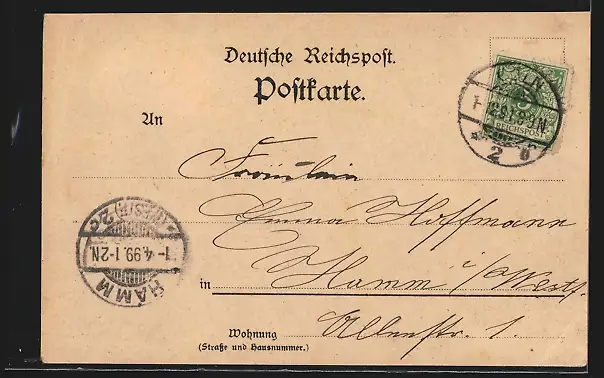 Deutsche Reichspost.
Postkarte.
5
REICHSPOST
2
An
Fräulein
Emma Hoffmann
(WESTF.) 2c
1-4.99.1-2N.
HAMM
Hamm i/Westf.
in
Wohnung
(Straße und Hausnummer.)